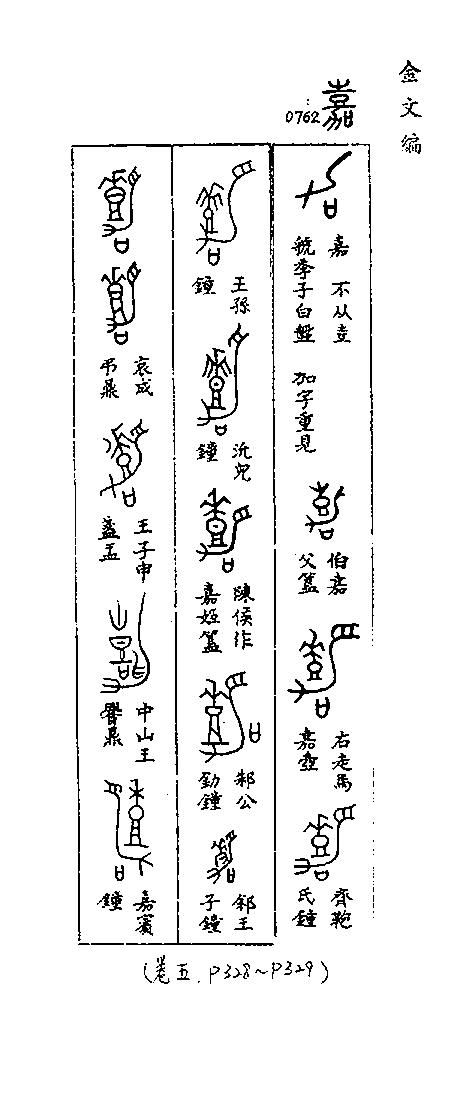 金文编
嘉
0762
嘉 不从壴
虢季子白盤 加字重見
伯嘉
父簋
右走馬
嘉壺
齊鞄
氏鐘
王孫
鐘
沇兒
鐘
陳侯作
嘉姬簋
邾公
釛鐘
郐王
子鐘
哀成
弔鼎
王子申
盞盂
中山王
鼎
嘉賓
鐘
(卷五.P328~P329)